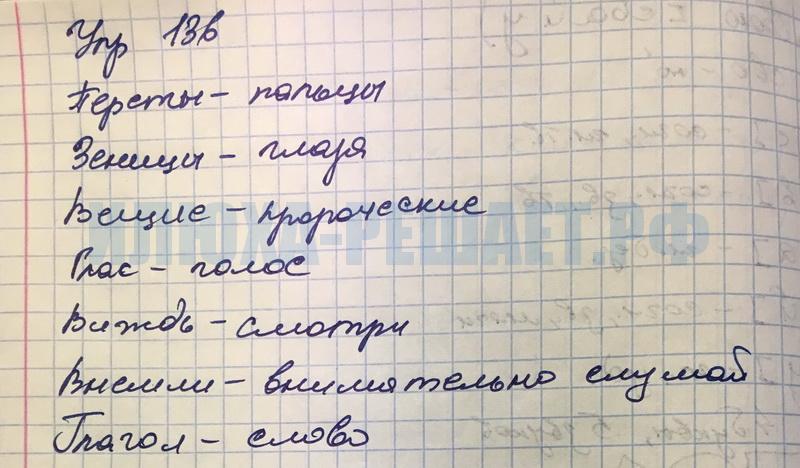 Упр 136
Персты - пальцы
Зеницы - глаза
Вещие - пророческие
ИЛЮХА-РЕШАЕТ.РФ
Глас - голос
Виждь - смотри
Внемли - внимательно слушай
Глагол - слово